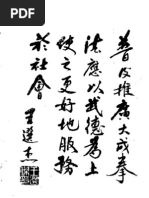 普及推廣大成拳
法應以武德為上
使之更好地服務
於社會 王選杰